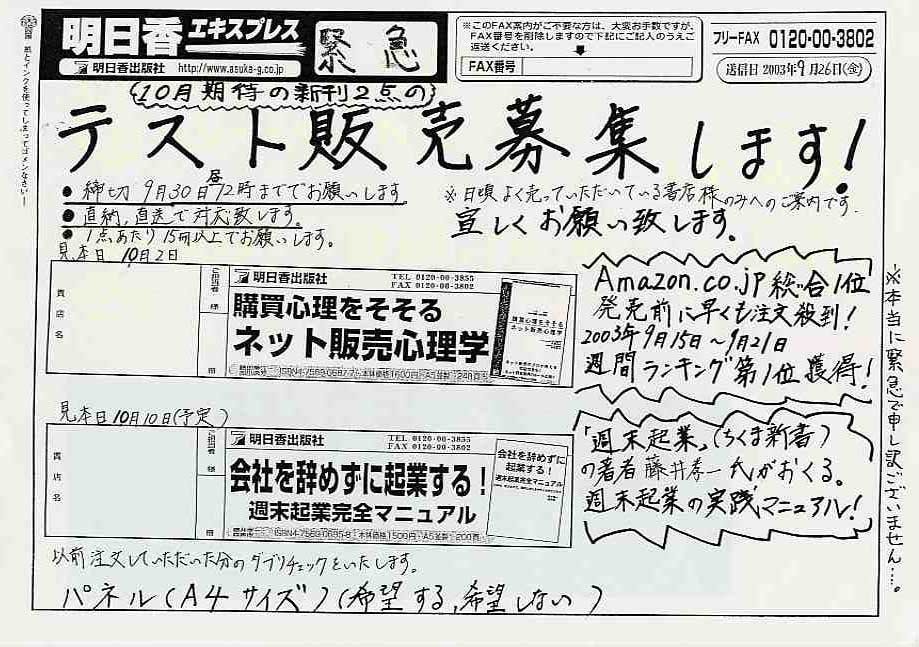 明日香エキスプレス
明日香出版社 http://www.asuka-g.co.jp
緊急
※このFAX案内がご不要な方は、大変お手数ですが、
FAX番号を削除しますので下記にご記入のうえご
返送ください。
FAX番号
フリーFAX 0120-00-3802
送信日 2003年9月26日(金)
紙とインクを使ってしまってゴメンなさい
10月期待の新刊2点の
テスト販売募集します!
● 締切 9月30日 昼12時まででお願いします
● 直納、直送で対応致します。
● 1点あたり15冊以上でお願いします。
※日頃よく売っていただいている書店様のみへのご案内です.
宜しくお願い致します。
見本日 10月2日
貴店名
ご担当者 様
冊
明日香出版社
TEL 0120-00-3855
FAX 0120-00-3802
購買心理をそそる
ネット販売心理学
本体価格1600円 A5並製 240頁
Amazon.co.jp 総合1位
発売前に早くも注文殺到!
2003年9月15日~9月21日
週間ランキング第1位獲得!
見本日10月10日(予定)
貴店名
ご担当者 様
冊
明日香出版社
TEL 0120-00-3855
FAX 0120-00-3802
会社を辞めずに起業する!
週末起業完全マニュアル
本体価格1500円 A5並製 200頁
会社を辞めずに
起業する!
週末起業完全マニュアル
「週末起業」(ちくま新書)
の著者 藤井孝一氏がおくる。
週末起業の実践マニュアル!
※本当に緊急で申し訳ございません…。
以前注文していただいた分のダブリチェックをいたします。
パネル(A4サイズ)(希望する,希望しない)